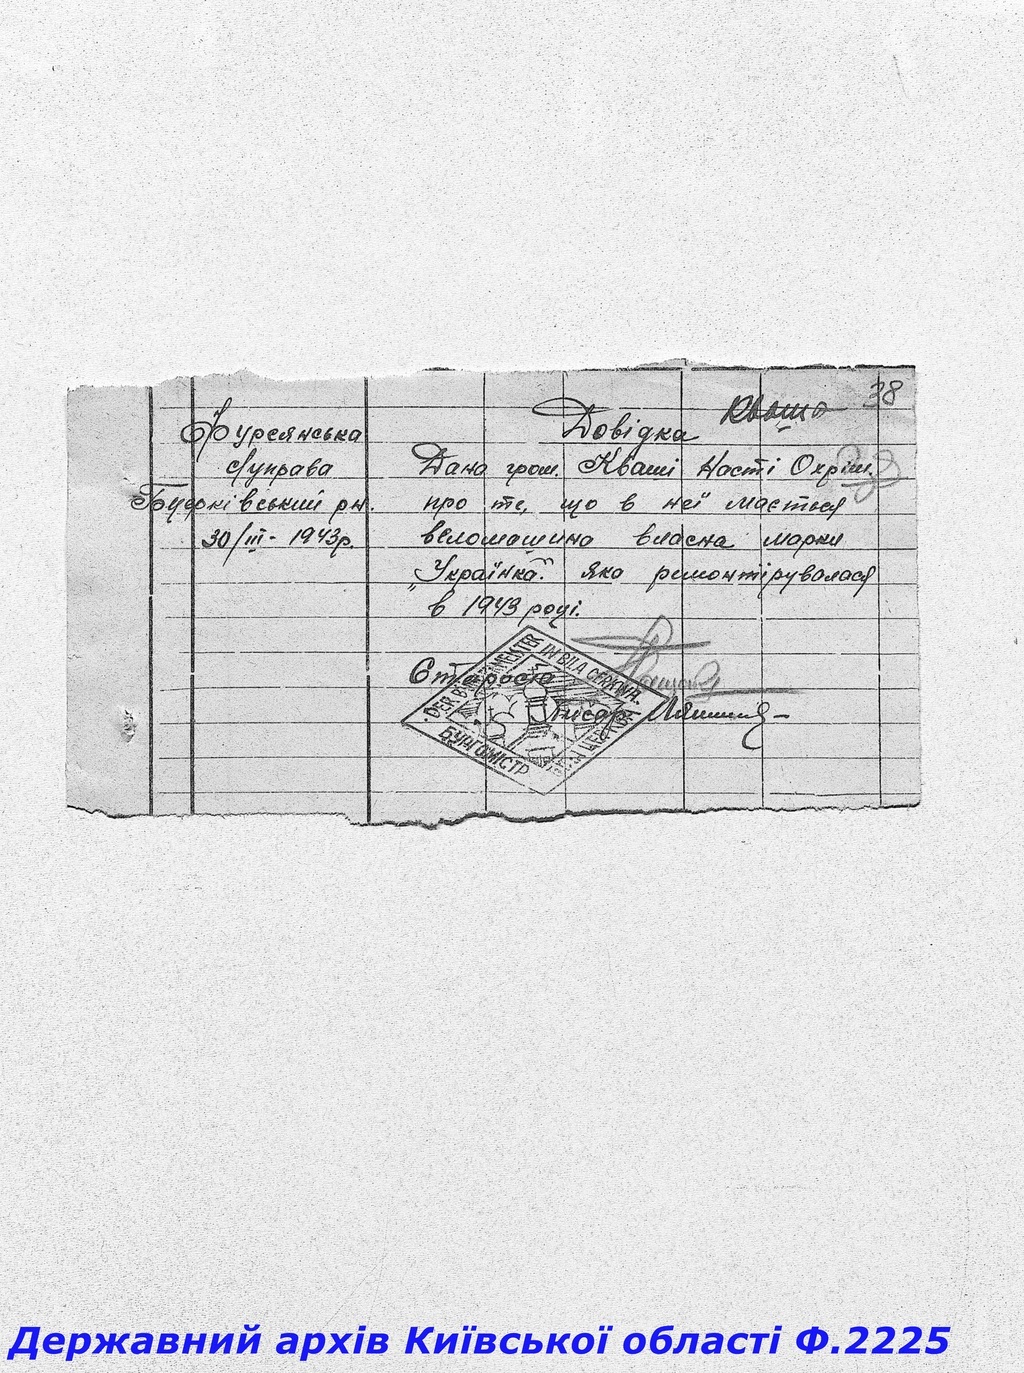 Кваша 38
Фурсянська
С/управа
30/III - 1943р.
Довідка
Дана гром. Кваші Насті Охрім.
про те, що в неї мається
веломашина власна марки
„Українка". яка ремонтірувалася
в 1943 році.
Староста
Писар
DER BÜRGERMEISTER IN BILA CERKWA
БУРГОМІСТР
Державний архів Київської області Ф.2225